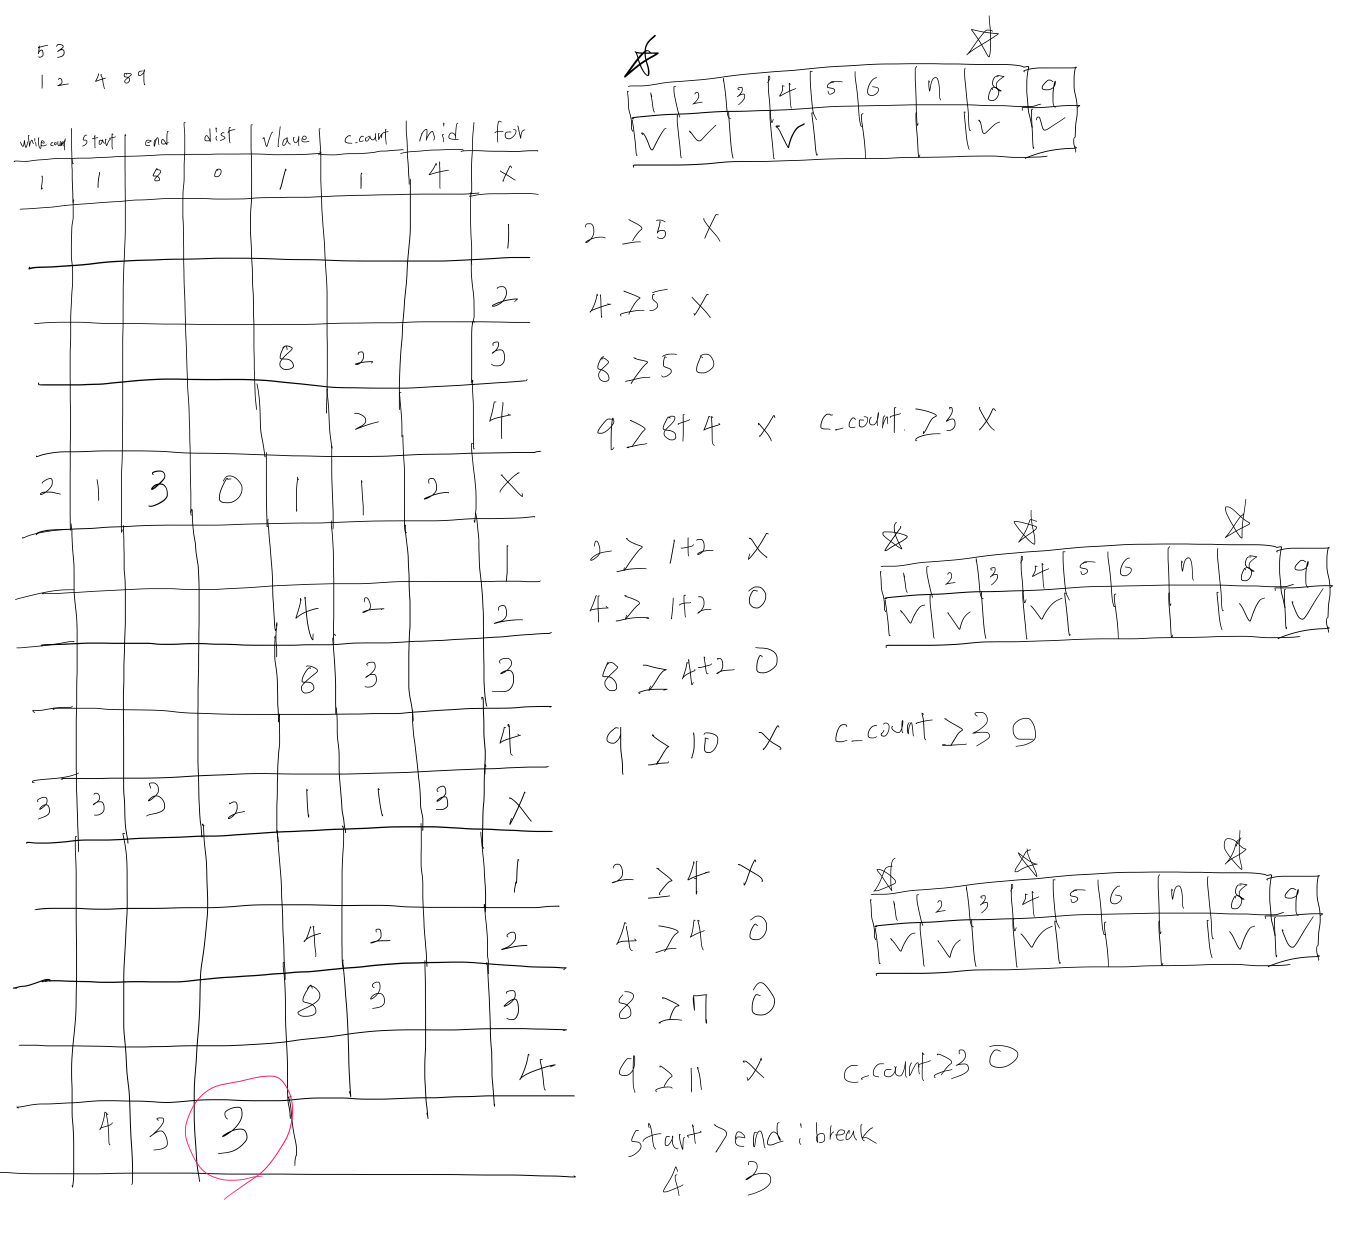 5 3
1 2 4 8 9
while count start end dist vlaue c.count mid for
1 1 8 0 1 1 4 X
1
2
8 2 3
2 4
2 1 3 0 1 1 2 X
1
4 2 2
8 3 3
4
3 3 3 2 1 1 3 X
1
4 2 2
8 3 3
4
4 3 3
1 2 3 4 5 6 7 8 9
V V V V V
2 ≥ 5 X
4 ≥ 5 X
8 ≥ 5 O
9 ≥ 8+4 X c_count. ≥ 3 X
2 ≥ 1+2 X
4 ≥ 1+2 O
8 ≥ 4+2 O
9 ≥ 10 X c_count ≥ 3 O
1 2 3 4 5 6 7 8 9
V V V V V
2 ≥ 4 X
4 ≥ 4 O
8 ≥ 7 O
9 ≥ 11 X c_count ≥ 3 O
1 2 3 4 5 6 7 8 9
V V V V V
start > end : break
4 3